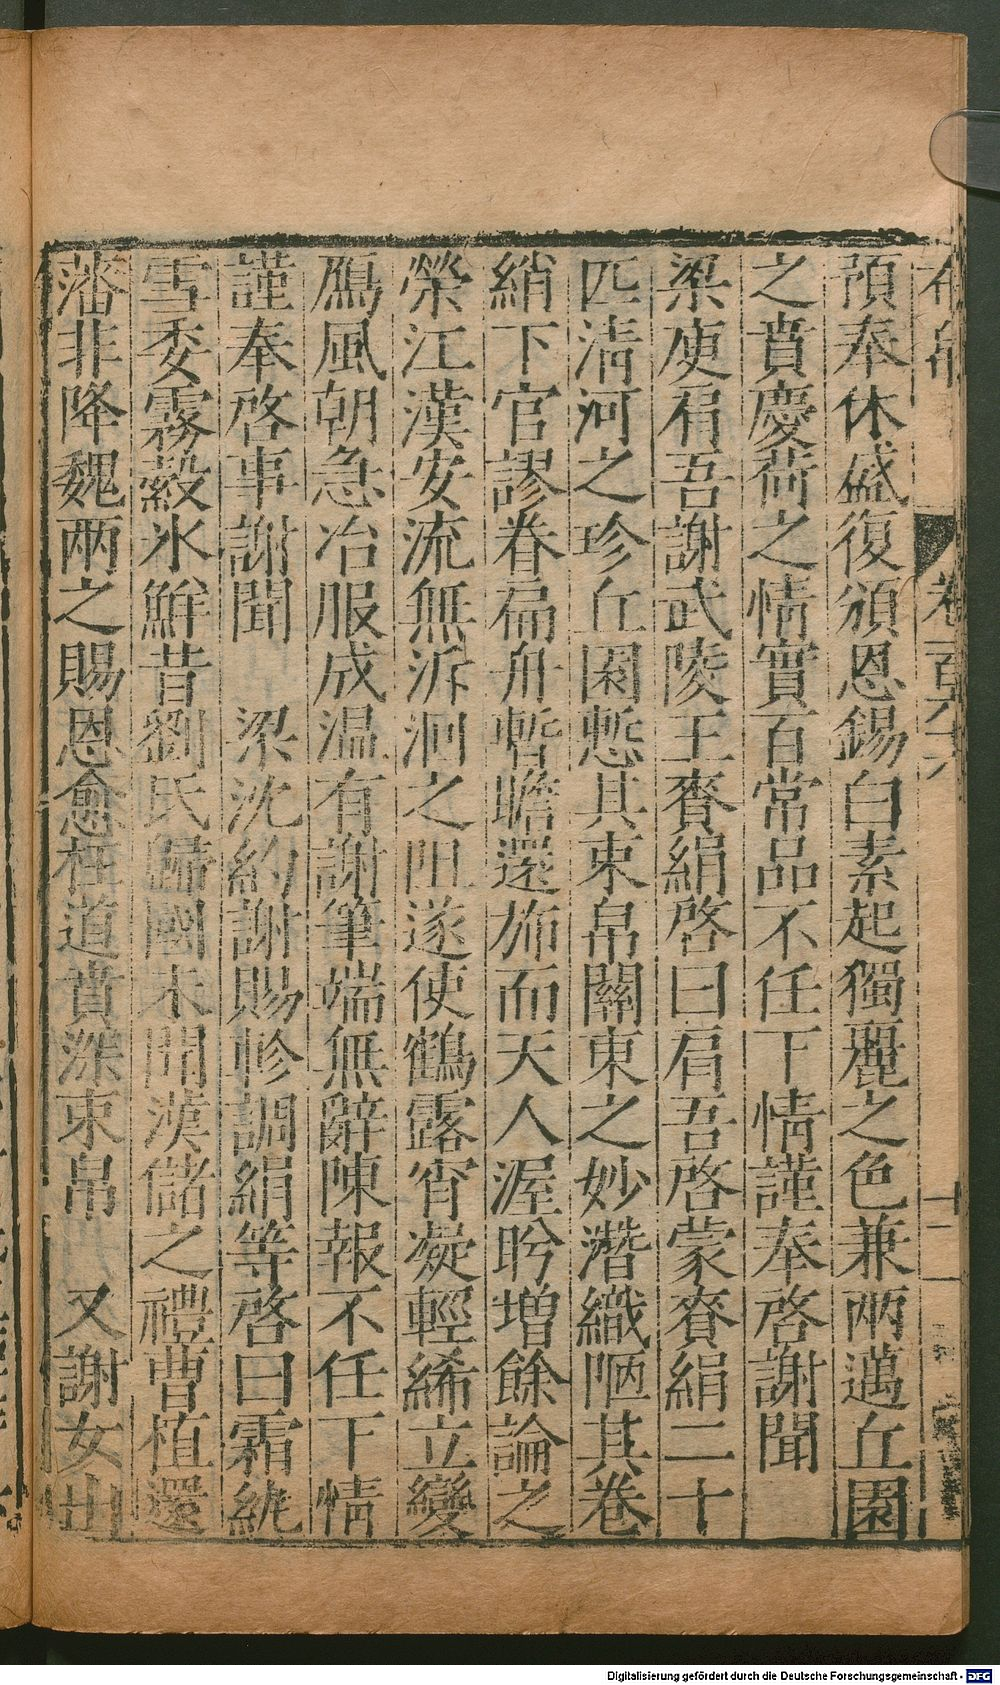 布帛 卷一百六十六 十二
預奉休盛復頒恩錫白素起獨麗之色兼兩邁丘園
之賁慶荷之情實百常品不任下情謹奉啓謝聞
梁庾肩吾謝武陵王賚絹啓曰肩吾啓蒙賚絹二十
匹清河之珍丘園慙其束帛關東之妙潛織陋其卷
綃下官謬眷扁舟暫瞻還斾而天人渥盻增餘論之
榮江漢安流無泝洄之阻遂使鶴露宵凝輕絺立變
鴈風朝急冶服成温有謝筆端無辭陳報不任下情
謹奉啓事謝聞 梁沈約謝賜軫調絹等啓曰霜紈
雪委霧縠氷鮮昔劉氏歸國未聞漢儲之禮曹植還
藩非降魏兩之賜恩愈枉道賁深束帛 又謝女出
Digitalisierung gefördert durch die Deutsche Forschungsgemeinschaft - DFG